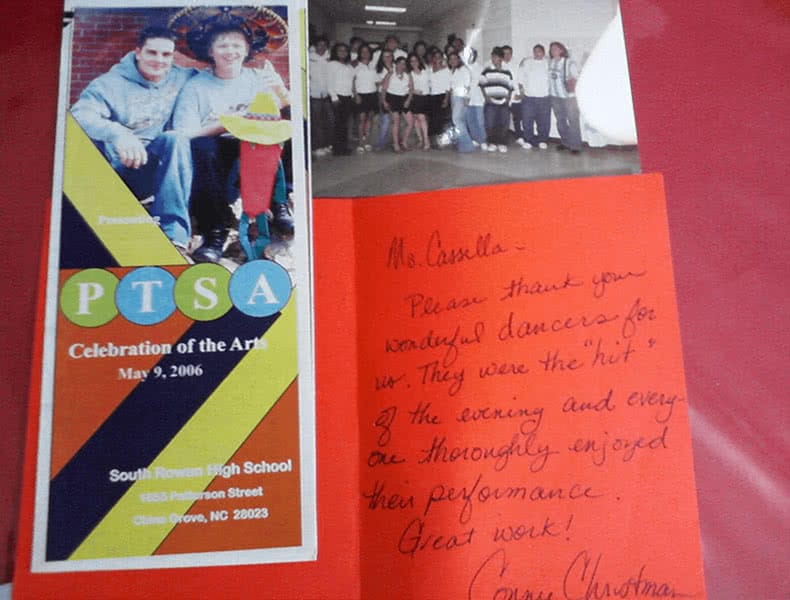 Presenting
PTSA
Celebration of the Arts
May 9, 2006
South Rowan High School
1655 Patterson Street
China Grove, NC 28023
Ms. Cassella -
Please thank your
wonderful dancers for
us. They were the "hit"
of the evening and every-
one thoroughly enjoyed
their performance.
Great work!
Connie Christman